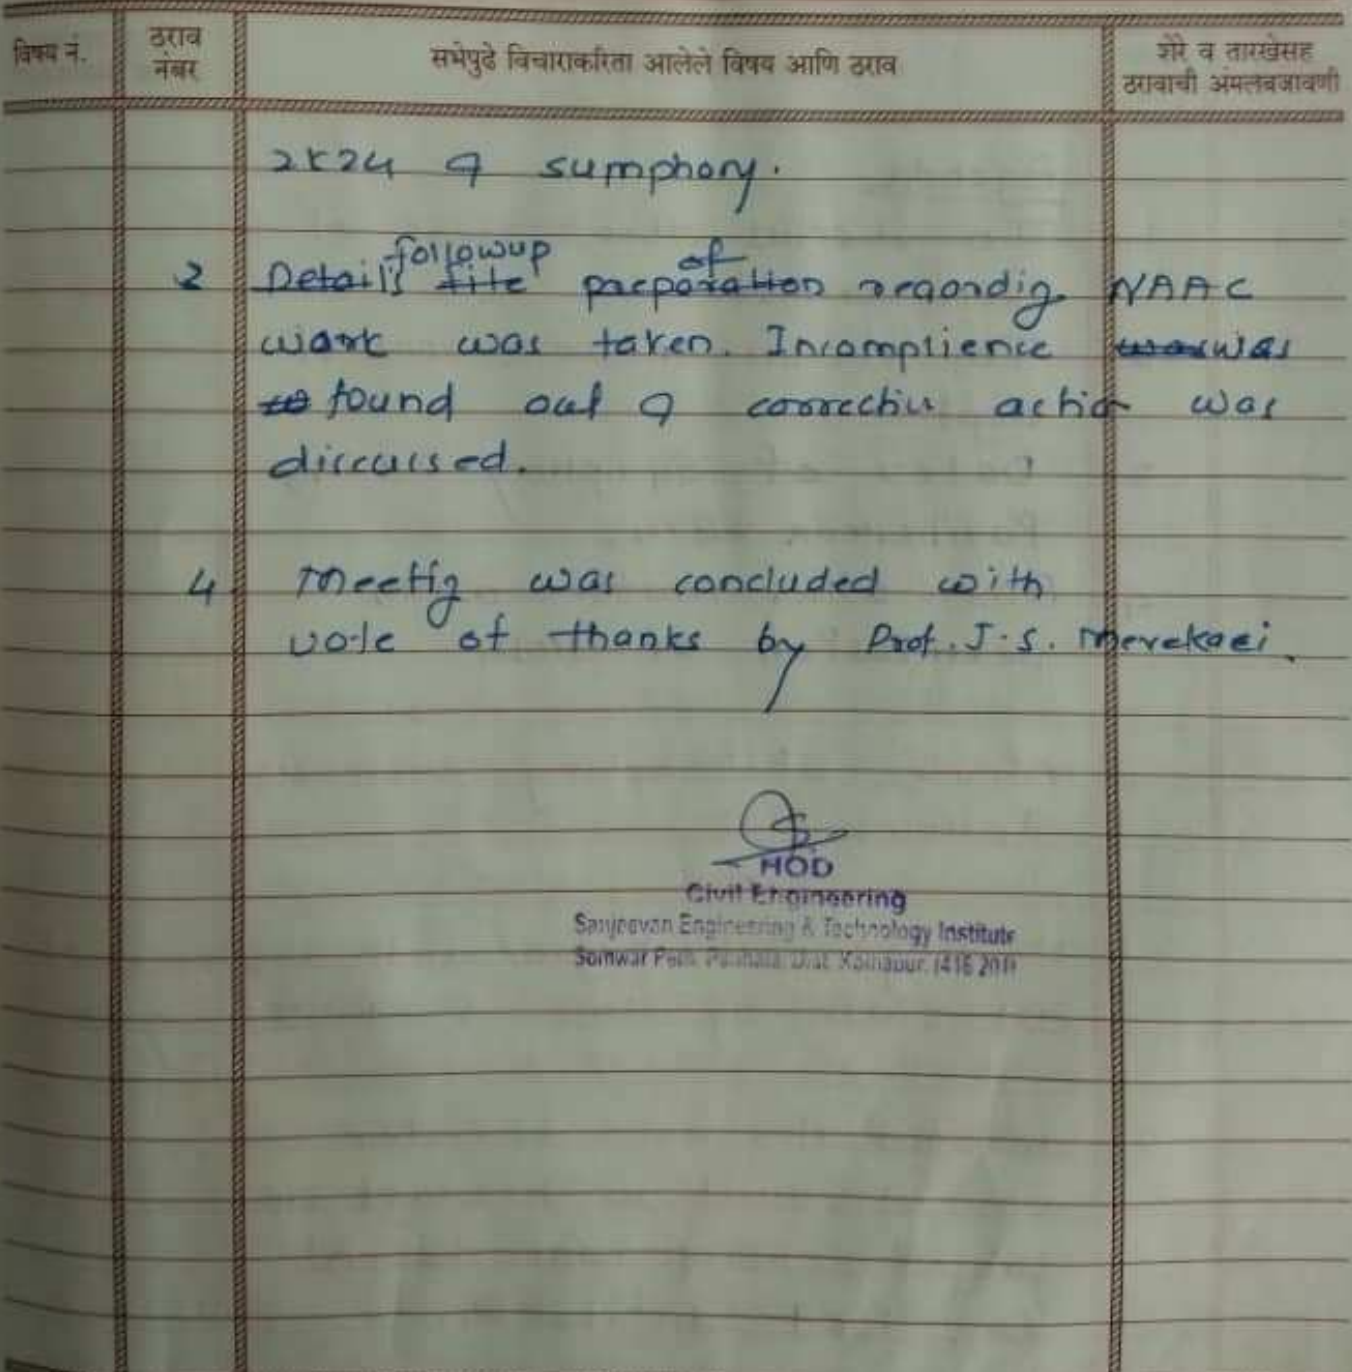 विषय नं.
ठराव नंबर
सभेपुढे विचाराकरिता आलेले विषय आणि ठराव
शेरे व तारखेसह
ठरावाची अंमलबजावणी
2K24 & sumphony.
followup of
2 Details file preparation regardig NAAC
work was taken. Incomplience was was
to found out & correctiv actio was
discussed.
4 Meetig was concluded with
vote of thanks by Prof. J.S. Merekari.
HOD
Civil Engineering
Sanjeevan Engineering & Technology Institute
Somwar Peth, Panhala, Dist. Kolhapur. (416 201)